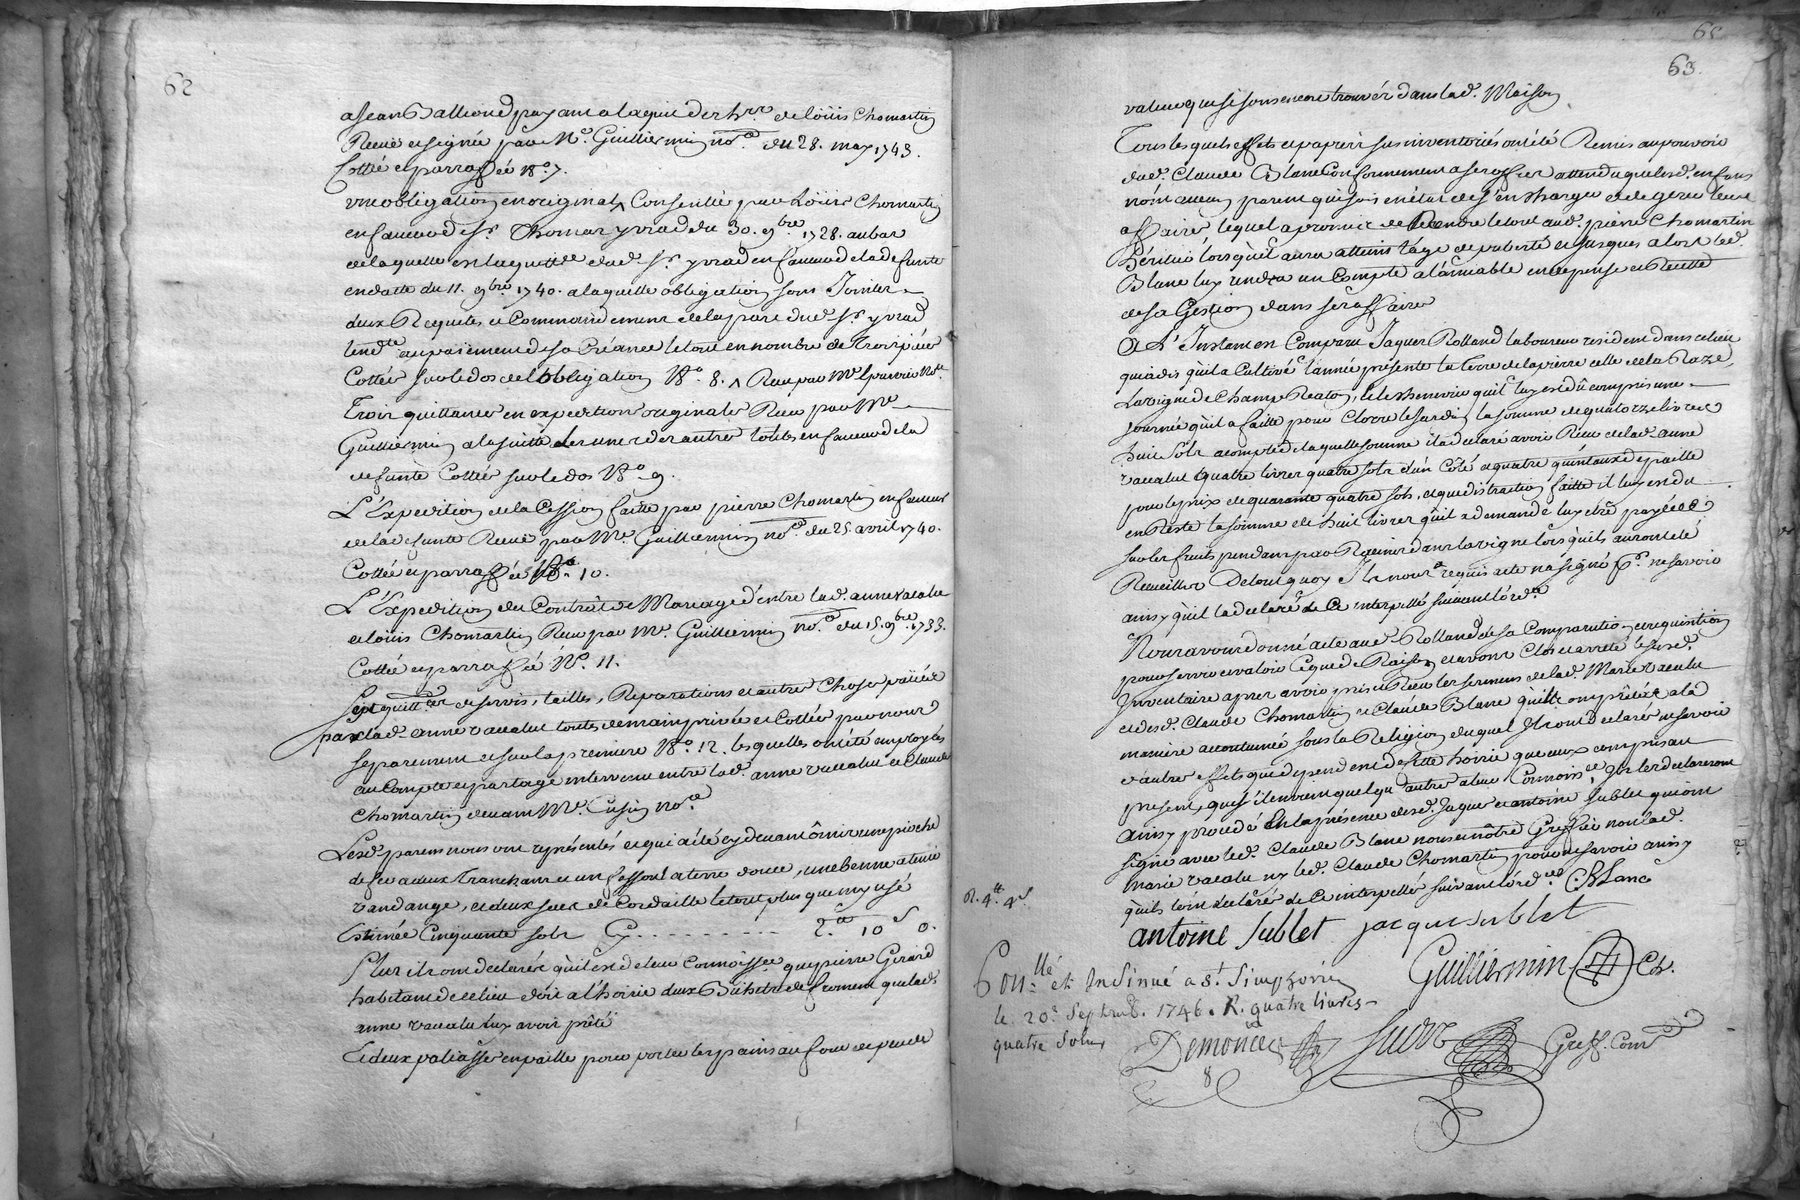 62
a Jean Ballioud payant a laquit des h.rs de loüis Chomartin
Reçue et signée par M.e Guilliermin no.re du 28. may 1743.
Cottée et parraffée N.o 7.
une obligation en original Consentie par Loüis Chomartin
en faveur de S.r Thomas yvrad du 30. 9.bre 1728. au bas
de laquelle est la quitt.ce dud. S.r yvrad en faveur de la defunte
en datte du 11. 9bre 1740. a laquelle obligation sont Jointes
deux Requetes et Commandement de la part dud. S.r yvrad
tend.te au paiement de sa Créance le tout en nombre de Trois pièces
Cottées sur le dos de l'obligation N.o 8.
Trois quittances en expedition originales Reçu par M.e
Guilliermin a la suitte les unes des autres toutes en faveur de la
defunte Cottées sur le dos N.o 9.
L'Expedition de la Cession faite par pierre Chomartin en faveur
de lad. defunte Reçue par M.e Guilliermin no.re du 25 avril 1740.
Cottée et parraffée N.o 10.
L'Expedition du Contrat de Mariage d'entre lad. anne vacalu
et loüis Chomartin Reçu par M.e Guilliermin no.re du 15. 9.bre 1733.
Cottée et parraffée N.o 11.
Sept quitt.ces de servis, tailles, Reparations et autres Choses païées
par lad. anne vacalut toutes de main privée et Cottées par nous
separement et sur la premiere N.o 12. lesquelles ont été employées
au Compte et partage intervenu entre lad. anne vacalu et Claude
Chomartin devant M.e Cusin no.re
Lesd. parens nous ont représentés ce qui a été cy devant ômis une pioche
de fer a deux Tranchans et un fossoul a terre douce, une benne a tenir
vandange, et deux sacs de Cordaille le tout plus que my usé
Estimée Cinquante sols Cy - - - - - - - - - 2.tt 10 s 0.
Plus ils ont declarés qu'il est de leur Connoiss.ce que pierre Girard
habitant de ce lieu doit a l'hoirie deux Bichets de froment que lad.
anne vacalu luy avoit prêté
Et deux paliasses en paille pour porter les pains au four de peu de
65
63.
valeur qui se sont encore trouvés dans lad. Maison.
Tous lesquels effets et papiers sus inventoriés ont été Remis au pouvoir
dud. Claude Blanc Conformement a ses offres attendu que lesd. enfans
n'ont aucun parent qui soit en état de s'en charger et de gerer leurs
affaires lequel a promis de Rendre le tout aud. pierre Chomartin
héritier lors qu'il aura atteint l'âge de puberté et jusques alors led.
Blanc luy rendra un Compte a l'amiable en depense et Recette
de sa Gestion dans ses affaires
A L'Instant en Comparu Jaques Rolland laboureur resident dans ce lieu
qui a dis qu'il a Cultivé l'année présente la Terre de la pierre celle de la Raze,
La vigne de Champ Reaton, et le Chenevier qu'il luy est dû compris une
journée qu'il a faitte pour Clorre le Jardin la somme de quatorze livres
huit Sols a compte de laquelle somme il a declaré avoir Reçu de lad. anne
vacalut quatre livres quatre sols d'un Côté et quatre quintaux de paille
pour le prix de quarante quatre sols, et que distraction faitte il luy est du
en Reste la somme de huit livres qu'il a demandé luy etre payées
sur les fruits pendans par Racines dans la vigne lors qu'ils auront été
Recueillis De tout quoy Il nous a requis acte n'a signé p.r ne savoir
ainsy qu'il l'a declaré de Ce interpellé suivant l'ord.ce
Nous avons donné acte aud. Rolland de sa Comparution et requisition
pour servir et valoir Ce que de Raison et avons Clos et arreté le susd.
Inventaire apres avoir pris et Reçu les sermens de lad. Marie vacalu
et desd. Claude Chomartin et Claude Blanc qu'ils ont prêtéz a la
maniere accoutumée sous la Religion duquel Ils ont declarés ne savoir
d'autres effets qui dependent de cette hoirie que ceux compris au
present, que s'il en vient quelqu'autre a leur Connoiss.ce, Ils les declareront
ainsy procedé En la présence desd. Jaques et antoine Sublet qui ont
signé avec led. Claude Blanc nous et nôtre Greffier non lad.
Marie vacalu ny led. Claude Chomartin pour ne savoir ainsy
qu'ils l'ont declaré de Ce interpellés suivant l'ord.ce C. BLanc
antoine Sublet jacque sublet
Guilliermin Ch.
R. 4.tt 4.s
Con.llé et Insinué a S.t Simphorien
le 20.e Septembre. 1746. R. quatre livres
quatre Sols
Demoncez Greff. Com.re
8